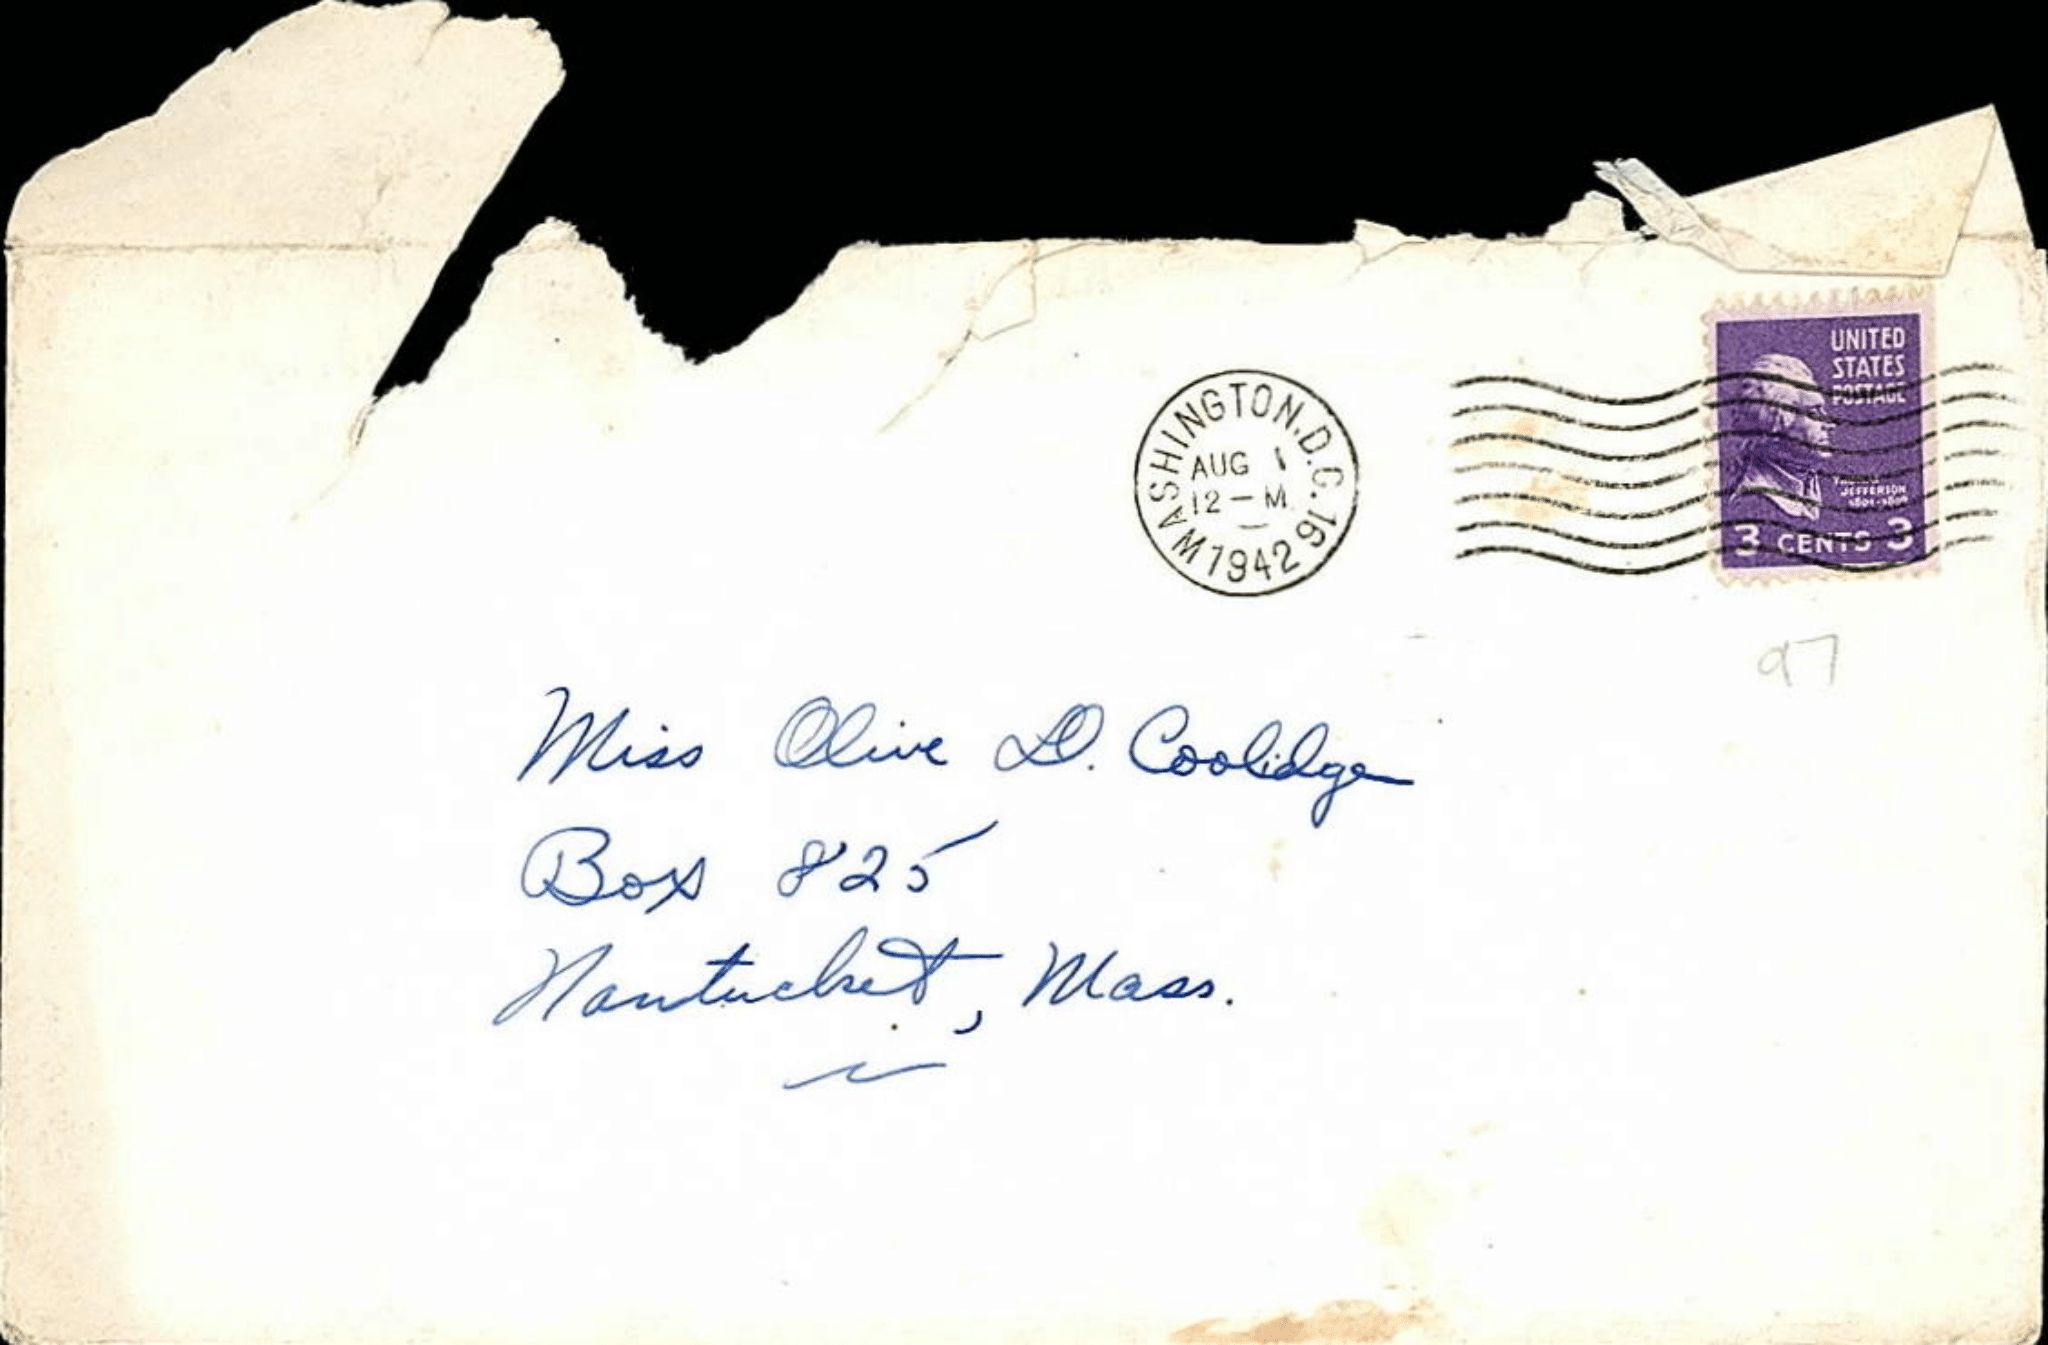 WASHINGTON, D.C. 16
AUG 1
12 — M
1942
UNITED
STATES
POSTAGE
JEFFERSON
3 CENTS 3
97
Miss Olive D. Coolidge
Box 825
Nantucket, Mass.